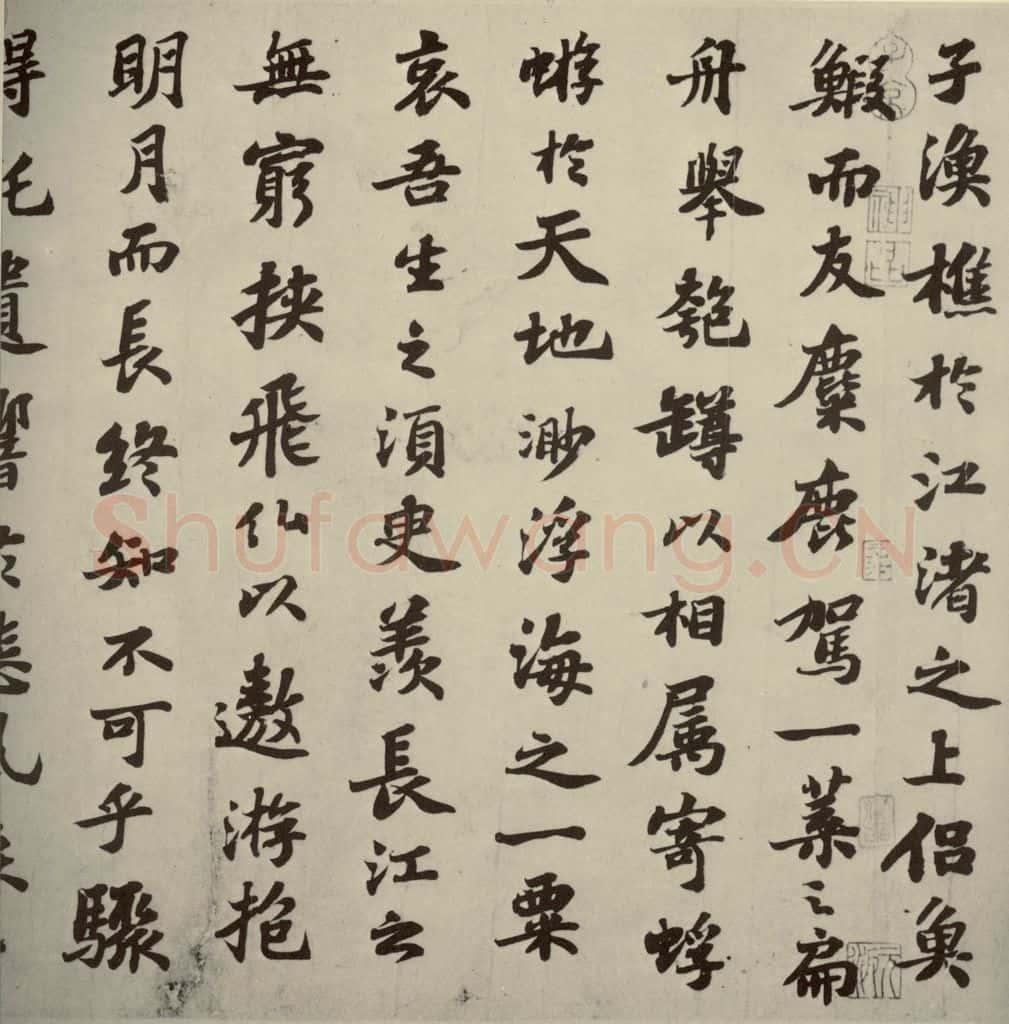 子漁樵於江渚之上侶魚
鰕而友麋鹿駕一葉之扁
舟舉匏罇以相属寄蜉
蝣於天地渺浮海之一粟
哀吾生之須臾羨長江之
無窮挾飛仙以遨游抱
明月而長終知不可乎驟
得託遺響於悲風
Shufawang.CN